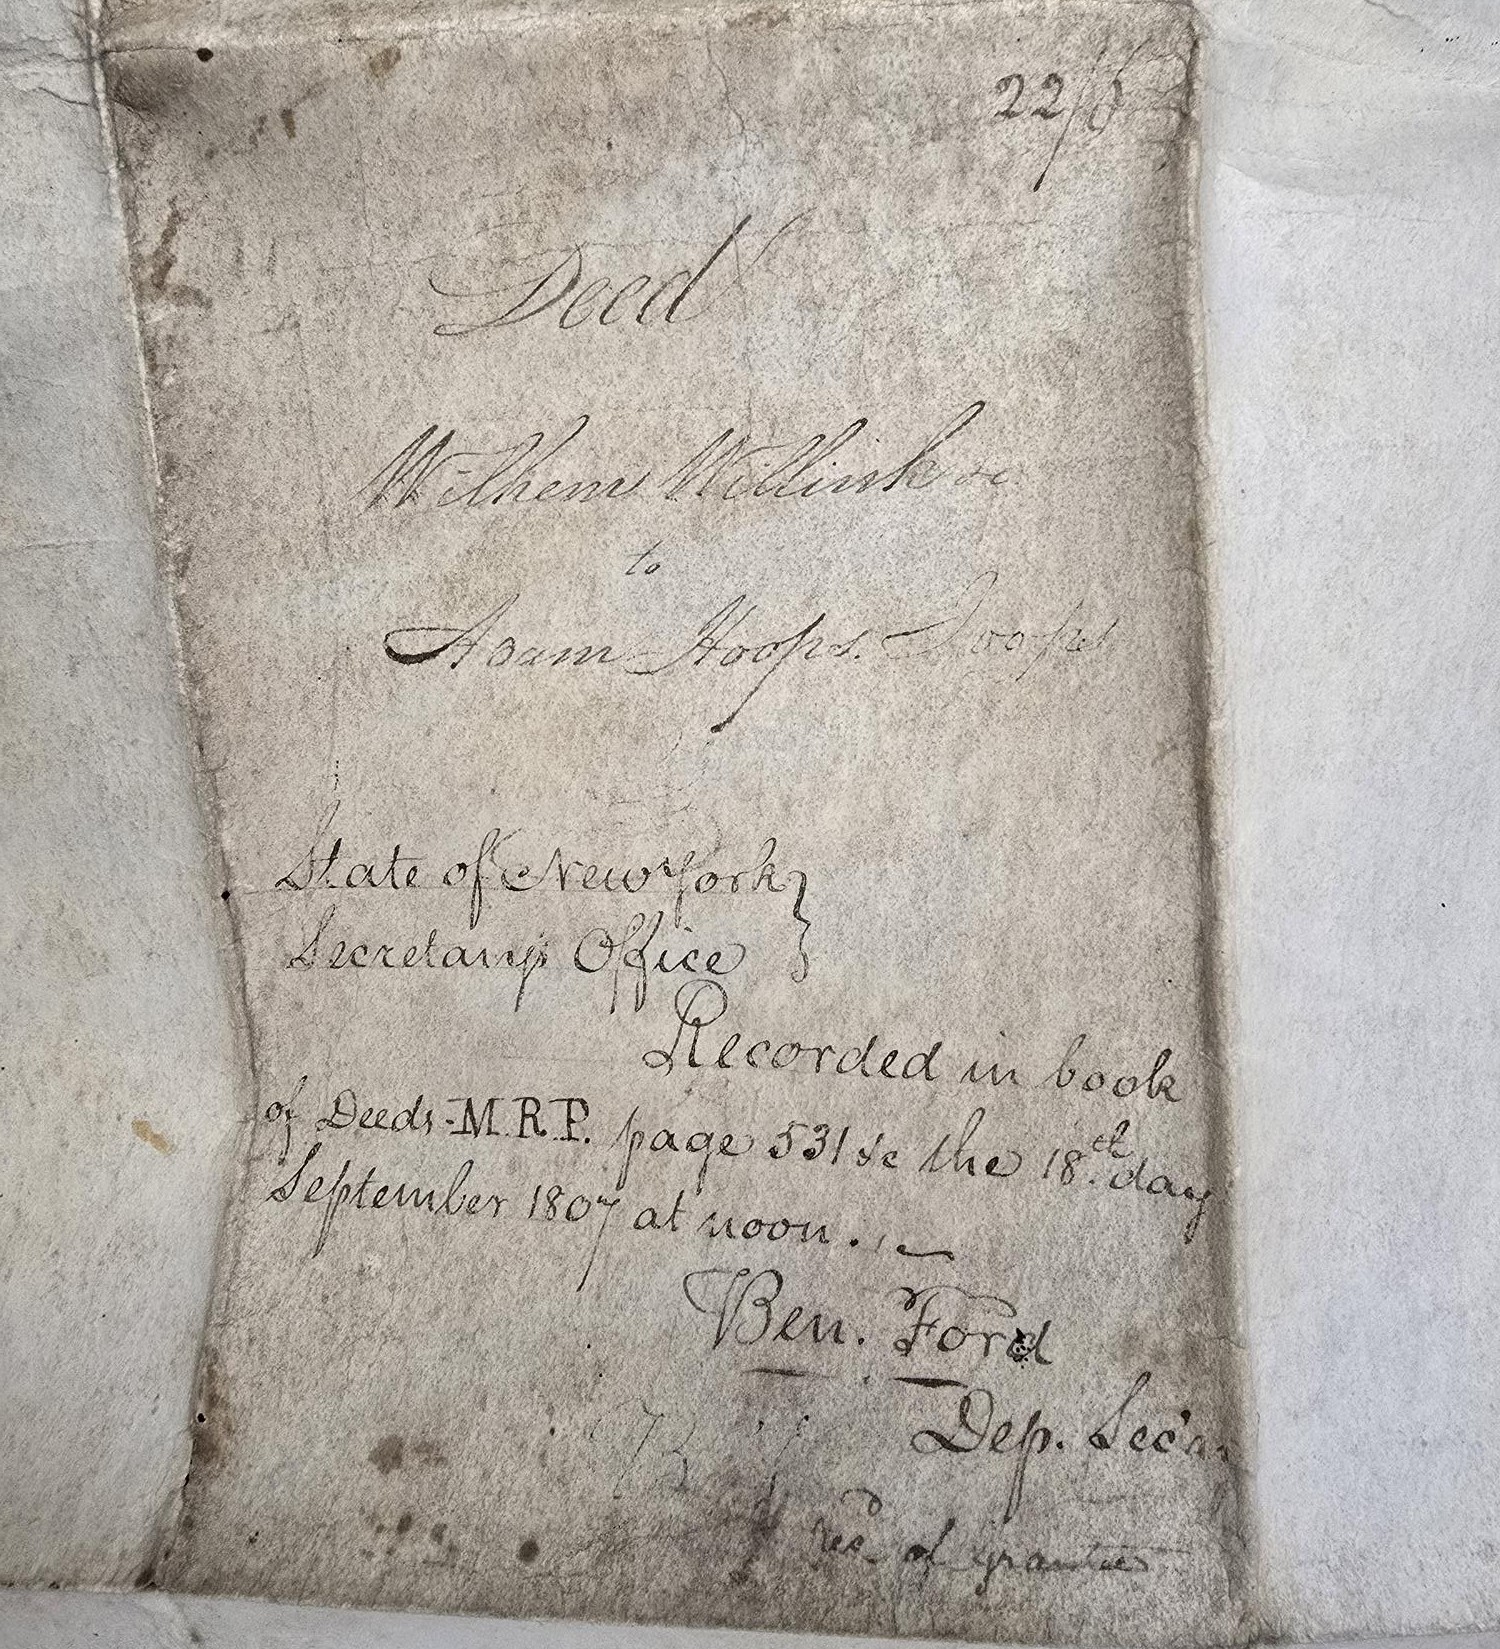 22/6
Deed
Wilhem Willink &c
to
Adam Hoops.
State of New York }
Secretary's Office }
Recorded in book
of Deeds M.R.P. page 531 &c the 18.th day
September 1807 at noon.
Ben. Ford
Dep. Sec'y
of grantee